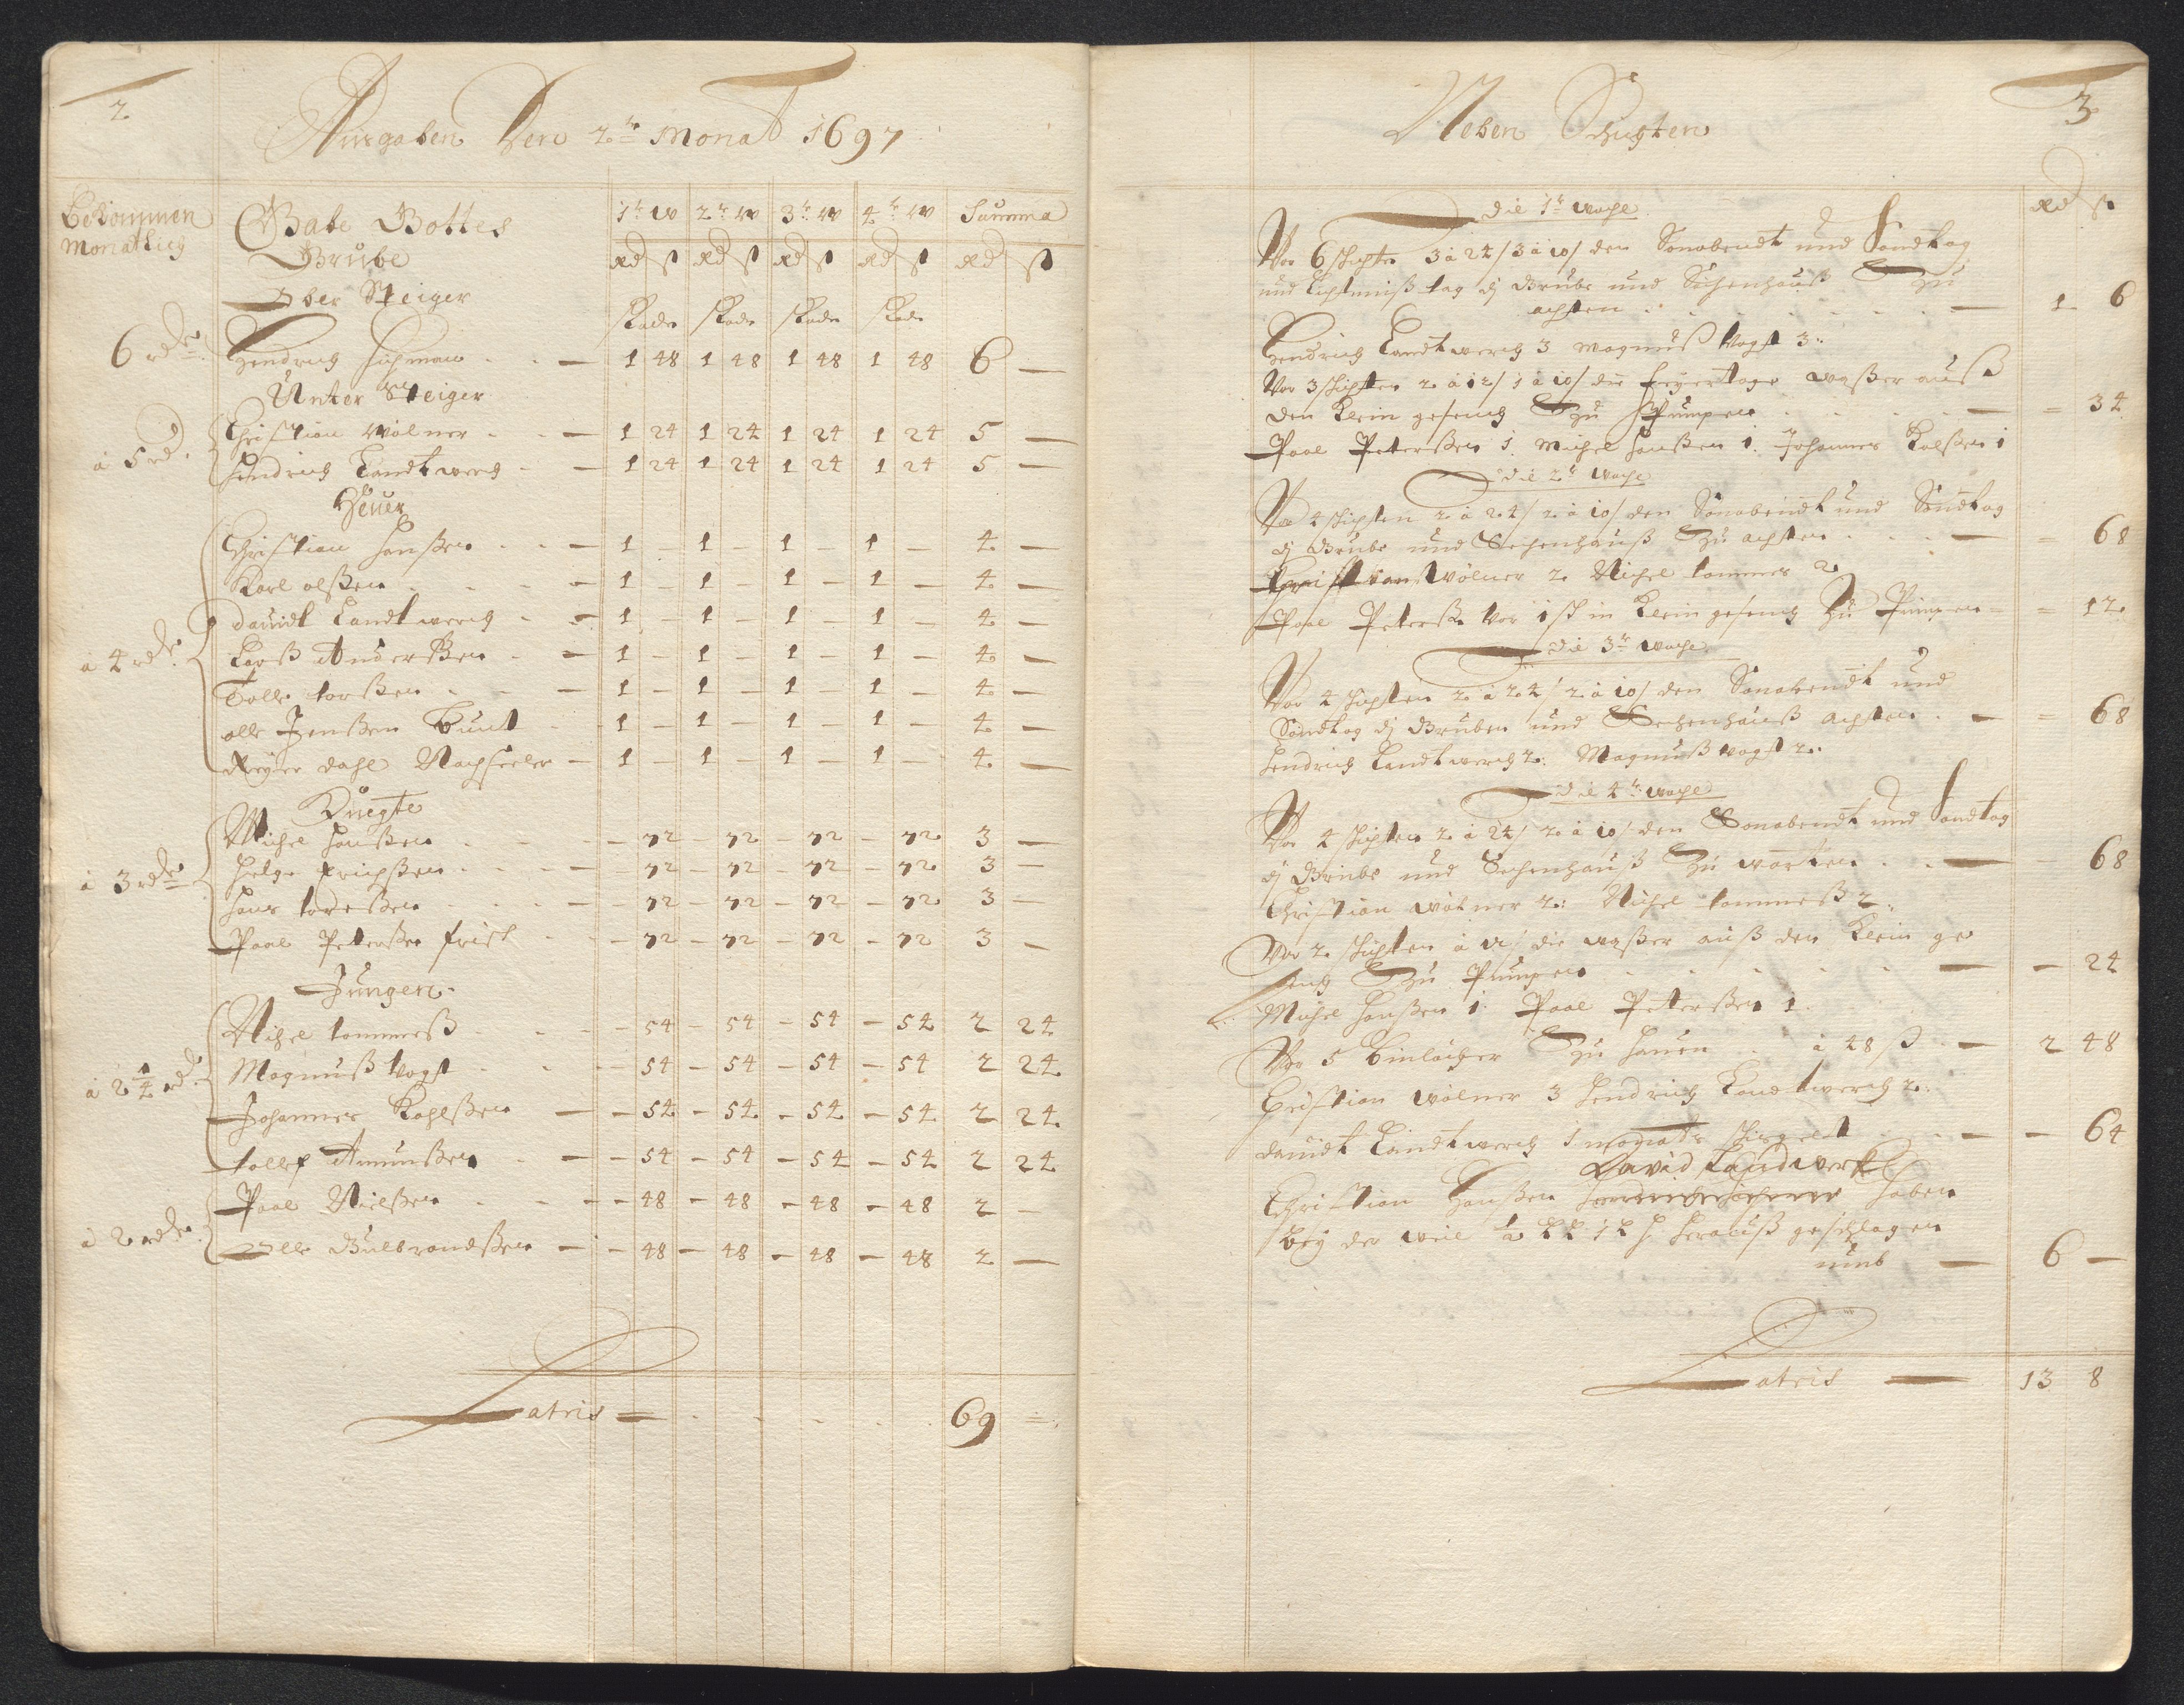 2
Ausgaben Den 2te Monat 1697
Bekommen Monathlich
Gabe Gottes
Grube
1te W 2te W 3te W 4te W Summa
Rd ß Rd ß Rd ß Rd ß Rd ß
Ober Steiger
6 rdr. Hendrich Suhman - 1 48 1 48 1 48 1 48 6 -
Unter Steiger
à 5 rd. Christian Wölner - 1 24 1 24 1 24 1 24 5 -
Hendrich Landtwerch - 1 24 1 24 1 24 1 24 5 -
Heuer
Christian Hanßen - 1 - 1 - 1 - 1 - 4 -
Karl olßen - 1 - 1 - 1 - 1 - 4 -
à 4 rdr. dauidt Landtwerch - 1 - 1 - 1 - 1 - 4 -
Larß Anderßen - 1 - 1 - 1 - 1 - 4 -
Tolle torßen - 1 - 1 - 1 - 1 - 4 -
olle Jenßen Bunt - 1 - 1 - 1 - 1 - 4 -
Reyer dahl Nachseeler - 1 - 1 - 1 - 1 - 4 -
Knegte
Michel Hanßen - 72 - 72 - 72 - 72 3 -
à 3 rdr Helge Erichßen - 72 - 72 - 72 - 72 3 -
Hans torßen - 72 - 72 - 72 - 72 3 -
Paal Peterßen frist - 72 - 72 - 72 - 72 3 -
Jungen
Nihel tommeß - 54 - 54 - 54 - 54 2 24
à 2 1/4 rd. Magnuß Vogt - 54 - 54 - 54 - 54 2 24
Johannes Kahlßen - 54 - 54 - 54 - 54 2 24
tollef Amunßen - 54 - 54 - 54 - 54 2 24
Paal Nielßen - 48 - 48 - 48 - 48 2 -
à 2 rdr. Olle Gulbrandßen - 48 - 48 - 48 - 48 2 -
Latris - 69 =
3
Neben Schigten
Rd ß
die 1te Woche
Vor 6 schichten 3 à 24/ 3 à 10/ den Sonabendt und Sondtag
und Lichtmiß tag dj Grube und Zechenhauß Zu
achten - 1 6
Hendrich Landtwerch 3 Magnuß Vogt 3:
Vor 3 schichten 2 à 12/ 1 à 10/ die feyertage waßer auß
den Klein geseng Zu Pumpen - = 34
Paal Peterßen 1. Michel Hanßen 1. Johannes Kalßen 1
die 2te Woche
Vor 4 schichten 2 à 24/ 2 à 10/ den Sonabendt und Sondtag
dj Grube und Zechenhauß Zu achten - = 68
Christian Wölner 2 Nichel tommes 2
Paal Peterßen vor 1 sch in Klein geseng Zu Pumpen = 12
die 3te Woche
Vor 4 schichten 2 à 24/ 2 à 10/ den Sonabendt und
Sondtag dj Gruben und Zechenhauß achten - = 68
Hendrich Landtwerch 2. Magnuß Vogt 2.
die 4te Woche
Vor 4 schichten 2 à 24/ 2 à 10/ den Sonabendt und Sondtag
dj Grube und Zechenhauß Zu warten - 68
Christian Wölner 2: Nichel tommeß 2
Vor 2 schichten à 12/ die waßer auß den Klein ge
seng Zu Pumpen - - 24
Michel Hanßen 1. Paal Peterßen 1.
Vor 5 Einlächer Zu hauen à 48 ß - 2 48
Christian Wölner 3 Hendrich Landtwerch 2.
dauidt Landtwerch 1 monats - - 64
David Landwerk
Christian Hanßen haben
bey der weil geschlagen
- 6 -
Latris - 13 8